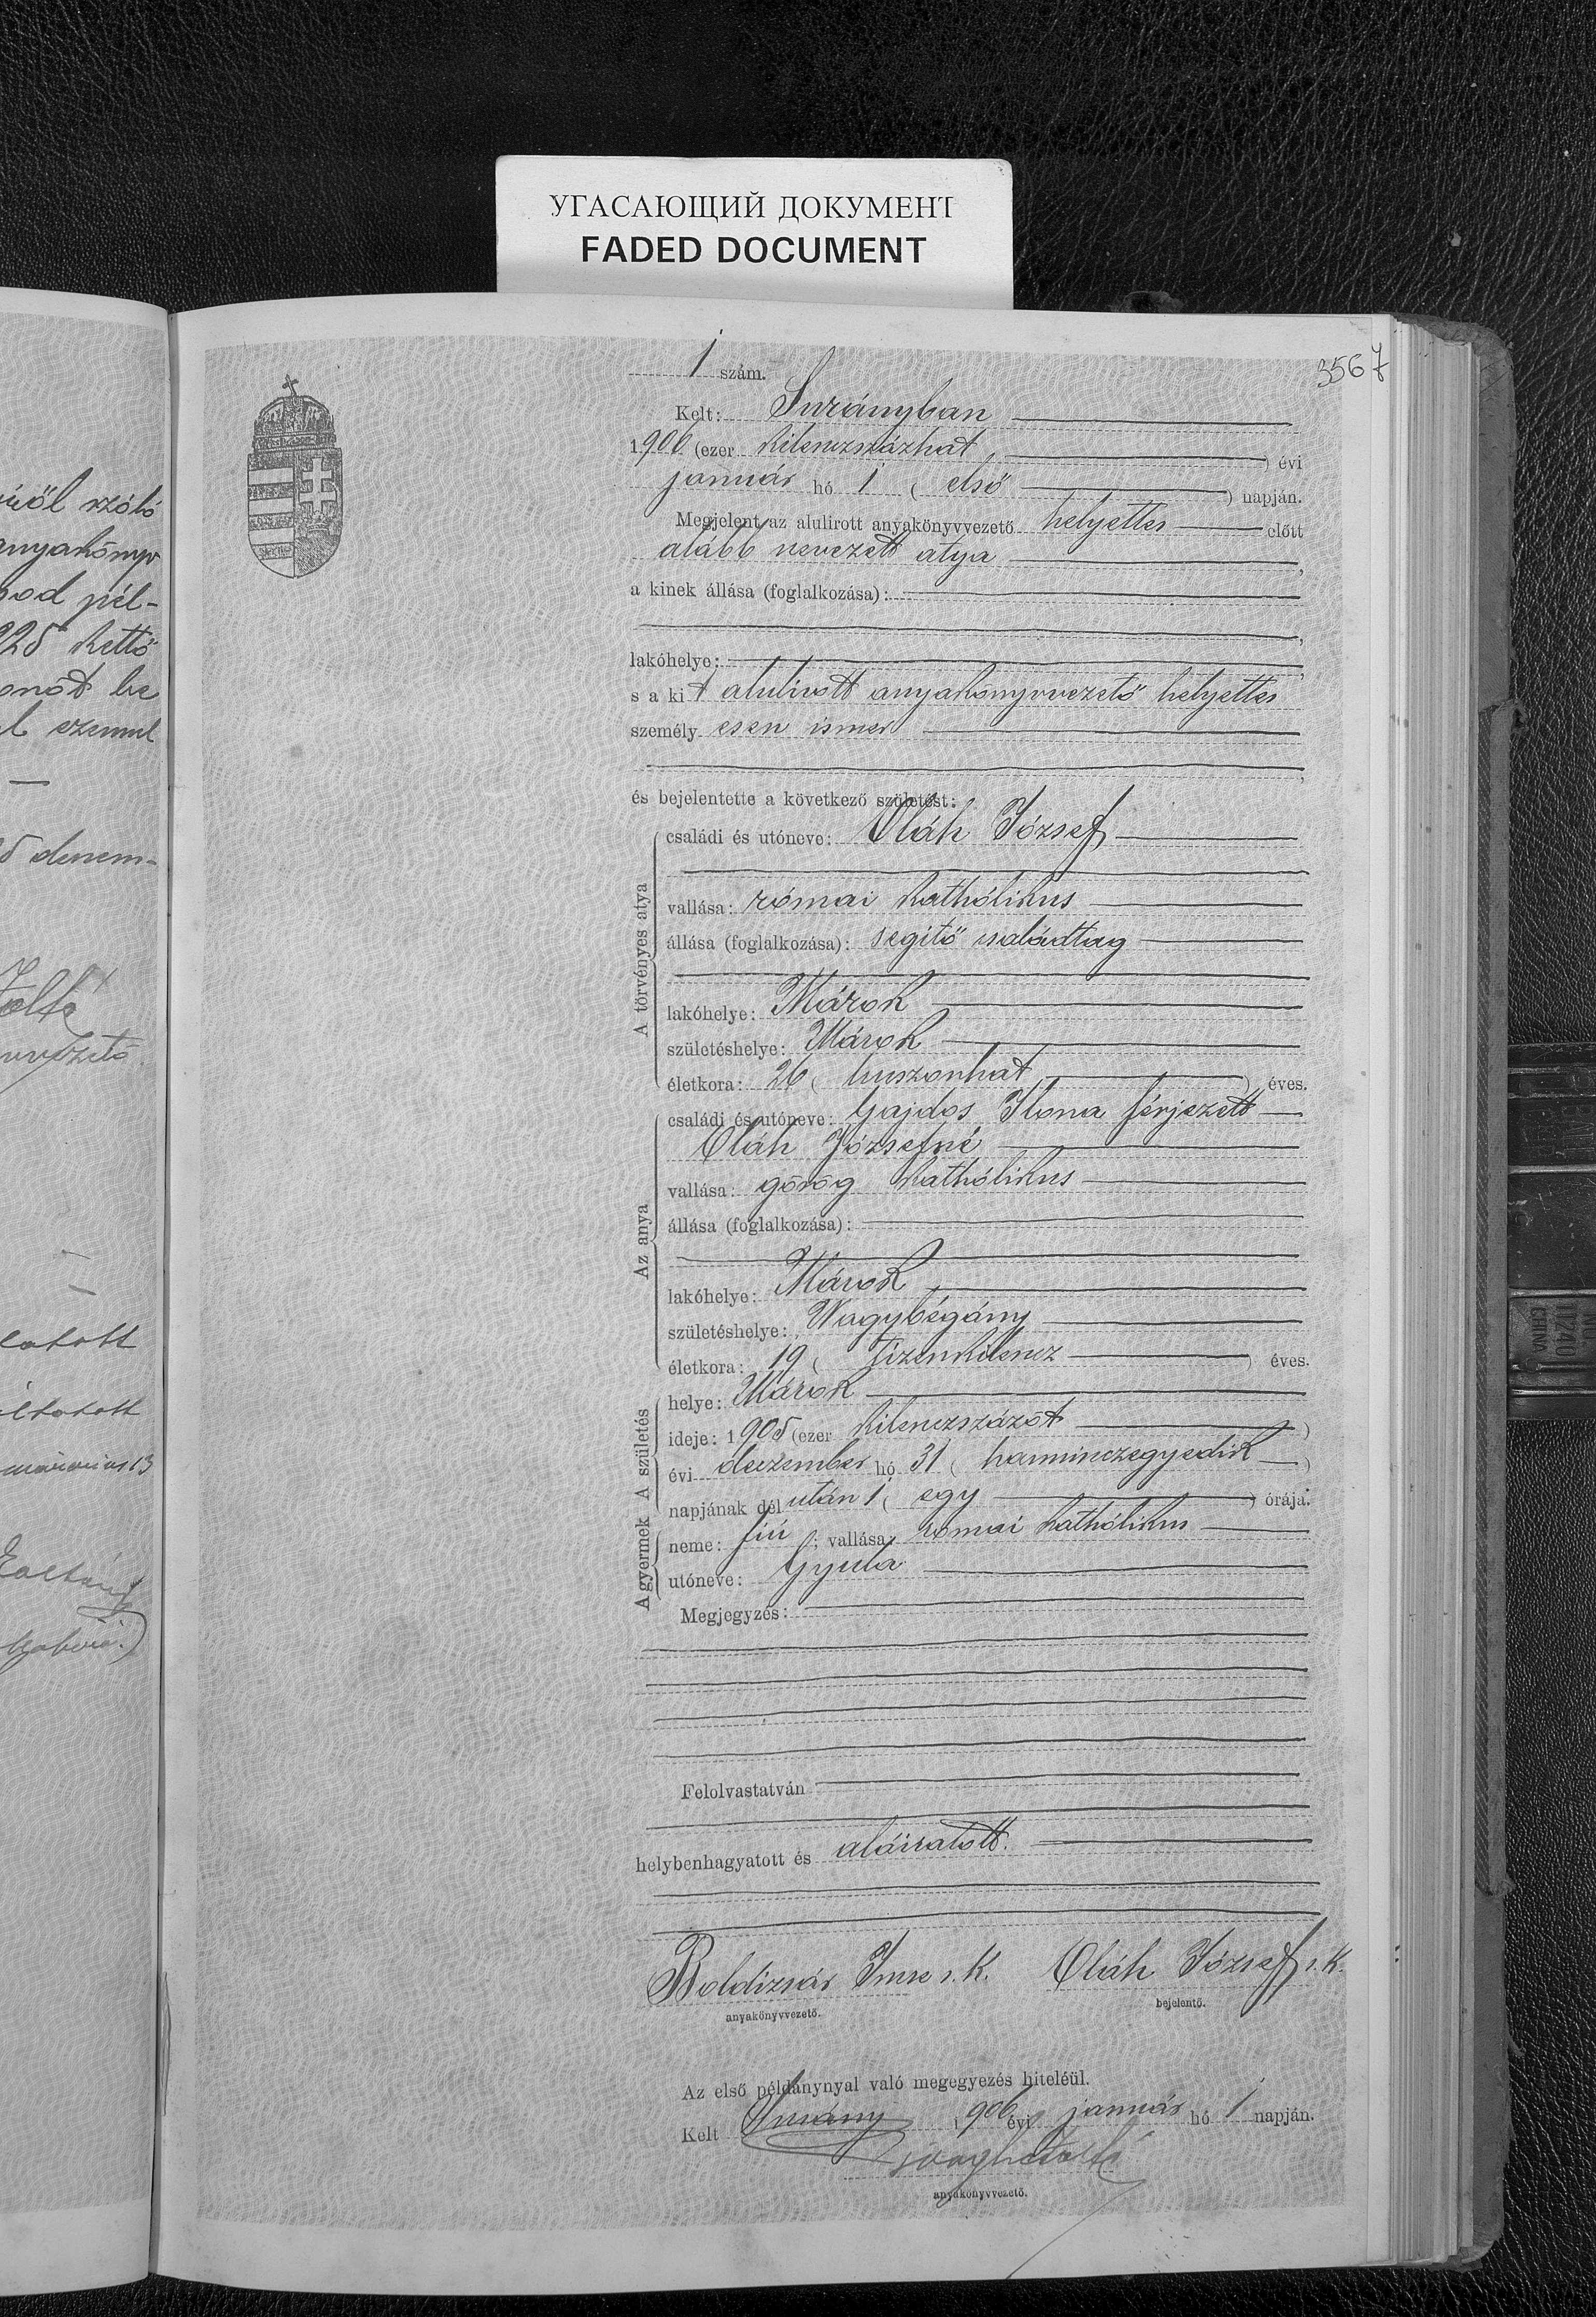 УГАСАЮЩИЙ ДОКУМЕНТ
FADED DOCUMENT
3567
1 szám.
Kelt: Surányban
1906 (ezer kilenczszázhat) évi
január hó 1 (első) napján.
Megjelent az alulirott anyakönyvvezető helyettes előtt
alább nevezett atya,
a kinek állása (foglalkozása):
lakóhelye:
s a kit alulirott anyakönyvvezető helyettes
személyesen ismer
és bejelentette a következő születést:
A törvényes atya
családi és utóneve: Oláh József
vallása: római kathólikus
állása (foglalkozása): segitő családtag
lakóhelye: Márok
születéshelye: Márok
életkora: 26 (huszonhat) éves.
Az anya
családi és utóneve: Gajdos Ilona férjezett
Oláh Józsefné
vallása: görög kathólikus
állása (foglalkozása):
lakóhelye: Márok
születéshelye: Nagybégány
életkora: 19 (tizenkilencz) éves.
A születés
helye: Márok
ideje: 1905 (ezer kilenczszázöt)
évi deczember hó 31 (harminczegyedik)
napjának dél után 1 (egy) órája.
A gyermek
neme: fiú; vallása: római kathólikus
utóneve: Gyula
Megjegyzés:
Felolvastatván
helybenhagyatott és aláiratott.
Boldizsár Imre s. k. Oláh József s. k.
anyakönyvvezető. bejelentő.
Az első példánynyal való megegyezés hiteléül.
Kelt Surány 1906 évi január hó 1 napján.
anyakönyvvezető.